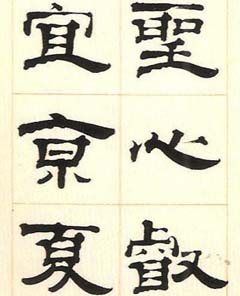 聖心叡
宜京夏